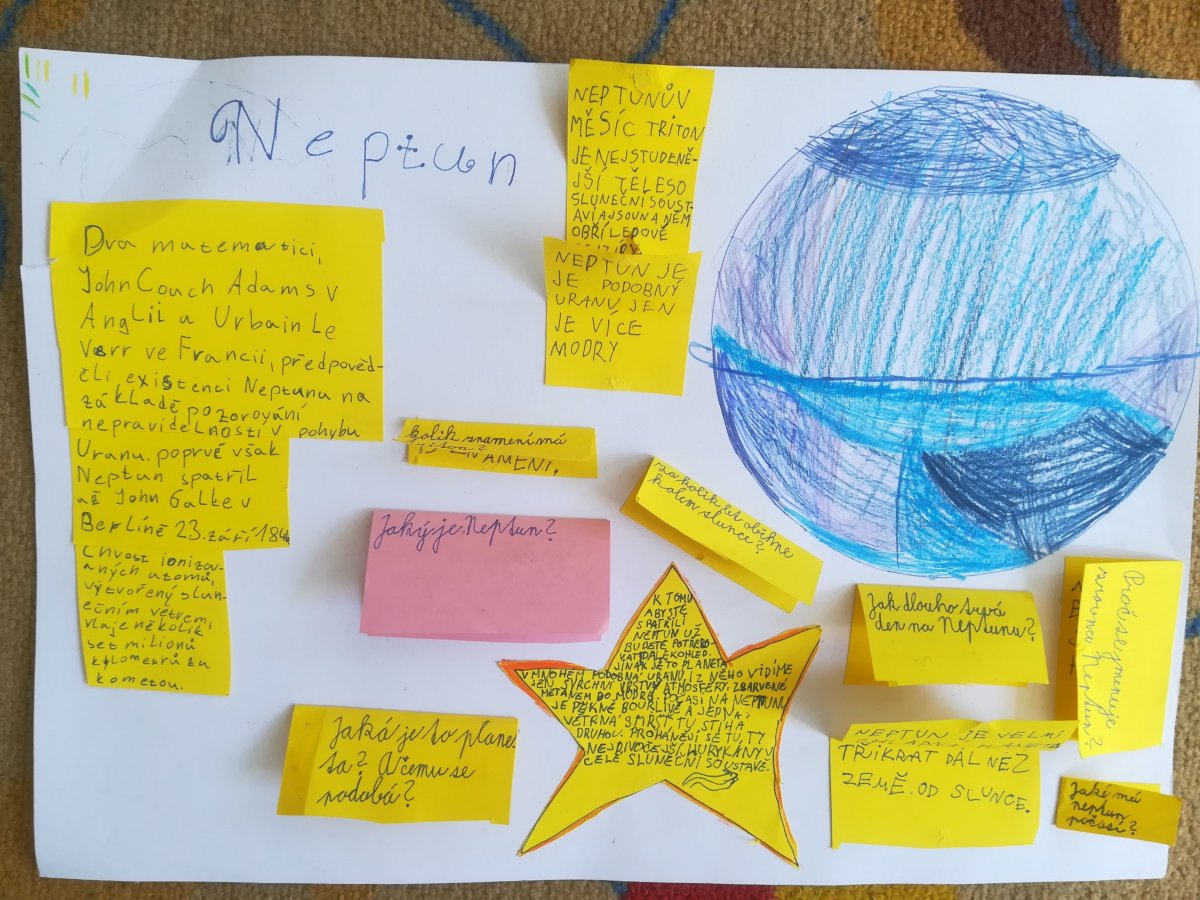 Neptun
Dva matematici,
John Couch Adams v
Anglii a Urbain Le
Verr ve Francii, předpověd-
ěli existenci Neptunu na
základě pozorování
nepravidelností v pohybu
Uranu. poprvé však
Neptun spatřil
až John Galle v
Berlíně 23. září 184
Chvost ionizov-
aných atomů,
vytvořený slun-
ečním větrem,
vlaje několik
set milionů
kilometrů za
kometou.
NEPTUNŮV
MĚSÍC TRITON
JE NEJSTUDENĚ-
JŠÍ TĚLESO
SLUNEČNÍ SOUST-
AVÍ A JSOU NA NĚM
OBŘÍ LEDOVÉ
NEPTUN JE
JE PODOBNÝ
URANU JEN
JE VÍCE
MODRY
kolik znamení má
ZNAMENÍ.
Jaký je Neptun?
za kolik let oběhne
kolem slunce?
K TOMU
ABYSTE
SPATŘILI
NEPTUN UŽ
BUDETE POTŘEBO-
VAT DALEKOHLED.
JINAK JE TO PLANETA
V MNOHEM PODOBNÁ URANU I Z NĚHO VIDÍME
JEN SVRCHNÍ VRSTVU ATMOSFÉRY, ZBARVENÉ
METANEM DO MODRA. POČASÍ NA NEPTUNU
JE PĚKNĚ BOUŘLIVÉ A JEDNA
VĚTRNÁ SMRŠŤ TU STÍHÁ
DRUHOU. PROHÁNĚJÍ SE TU, TY
NEJDIVOČEJŠÍ HURYKÁNY V
CELÉ SLUNEČNÍ SOUSTAVĚ.
Jaká je to plane
ta? A čemu se
podobá?
Jak dlouho trvá
den na Neptunu?
Proč se jmenuje
zrovna Neptun?
NEPTUN JE VELMI
TŘIKRAT DÁL NEŽ
ZEMĚ. OD SLUNCE.
Jaké má
neptun
počasí?